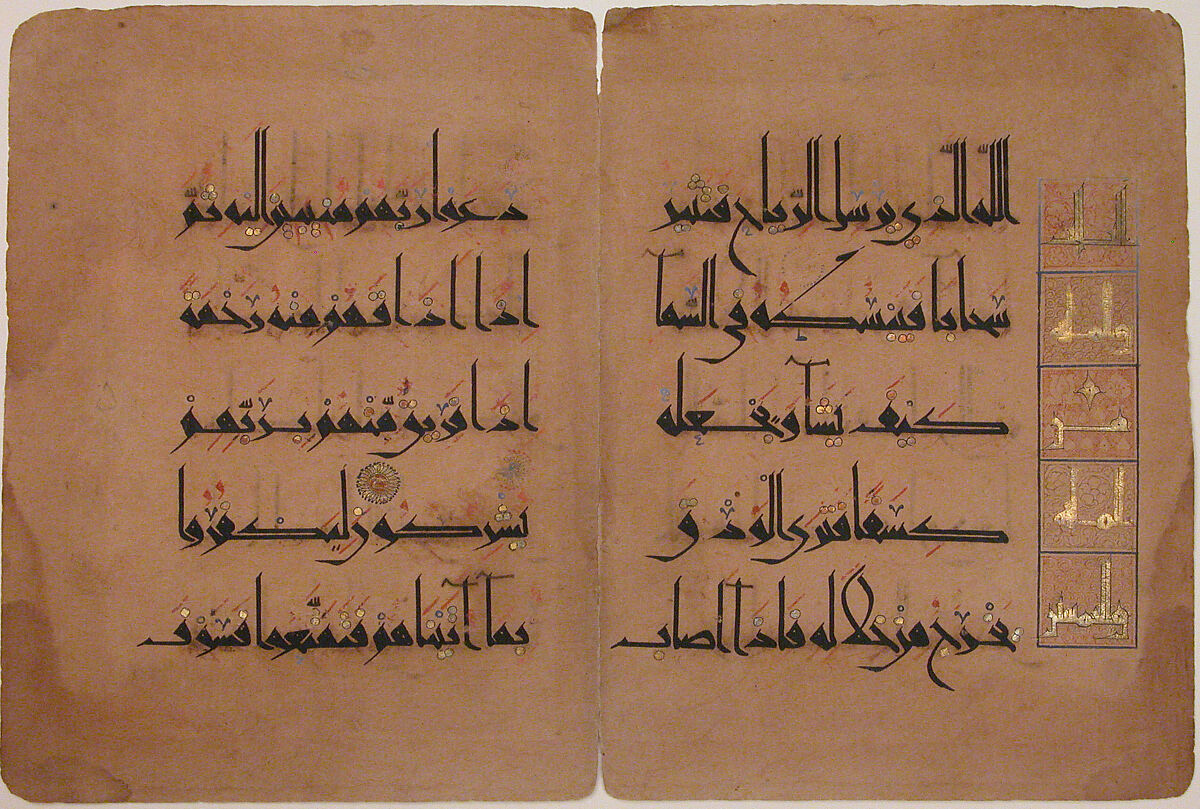 الله الذي يرسل الرياح فتثير
سحابا فيبسطه في السمآ
كيف يشآ ويجعله
كسفا فترى الودق
يخرج من خلاله فاذا اصاب
دعوا ربهم منيبين اليه ثم
اذا اذاقهم منه رحمة
اذا فريق منهم بربهم
يشركون ليكفروا
بمآ آتيناهم فتمتعوا فسوف